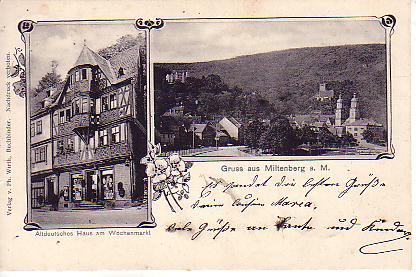 Verlag v. Ph. Werth, Buchbinder. Nachdruck verboten.
Altdeutsches Haus am Wochenmarkt
Gruss aus Miltenberg a. M.
Es sendet dir besten Grüße
deine Maria.
Viele Grüße an Tante und Kinder